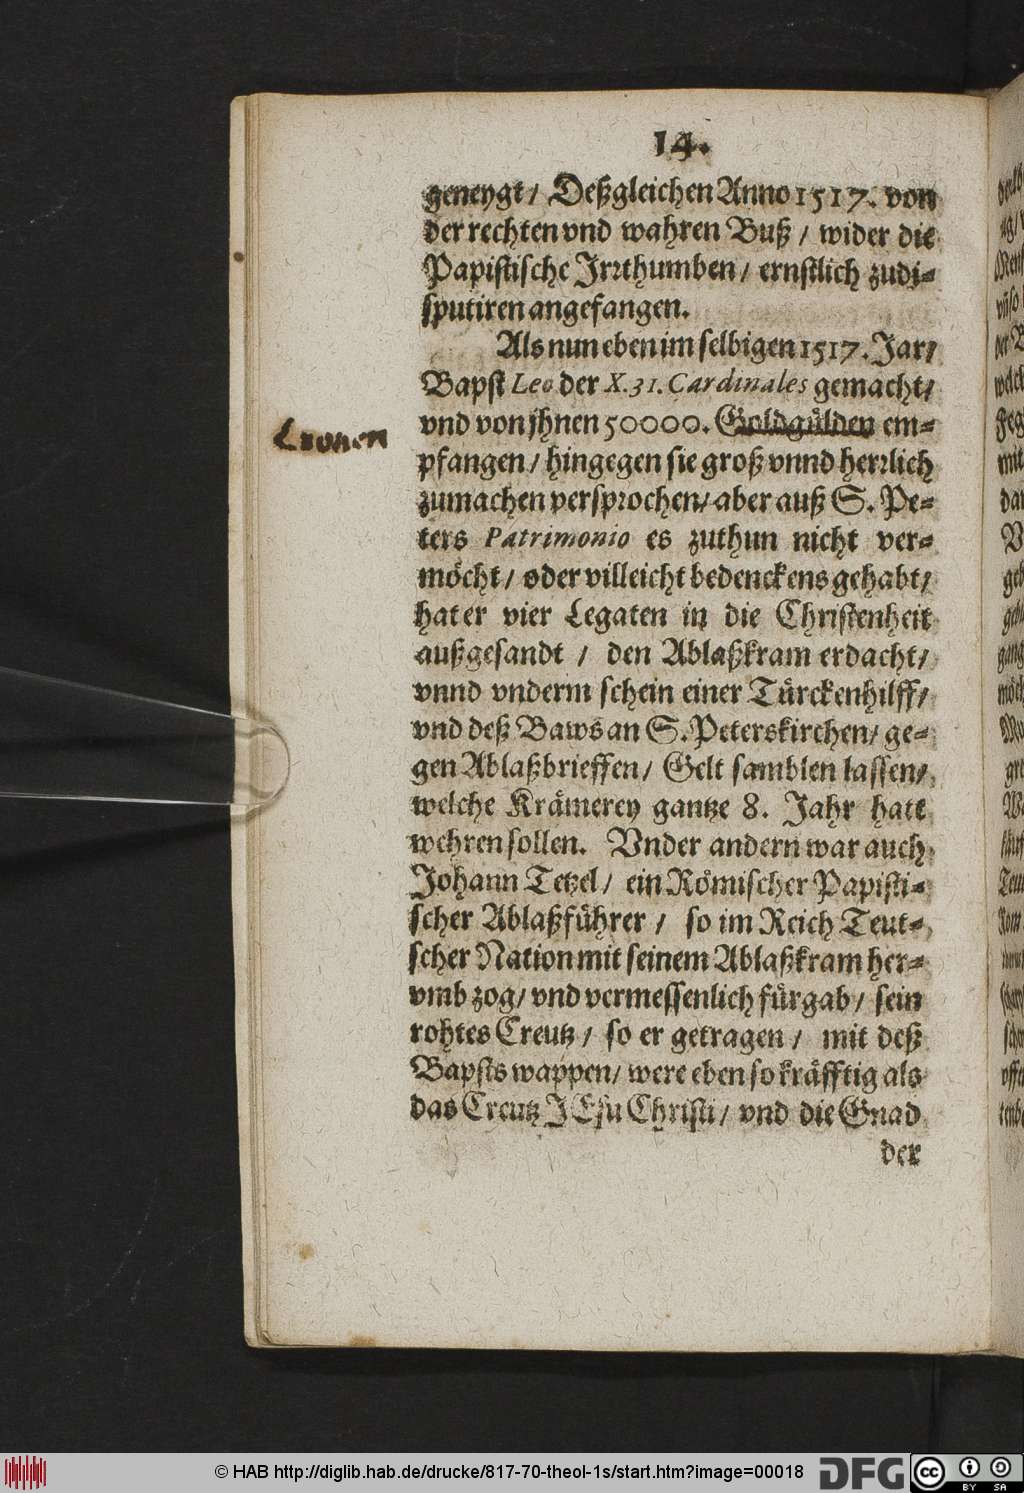 14.
geneygt/ Deßgleichen Anno 1517. von
der rechten vnd wahren Buß / wider die
Papistische Irrthumben/ ernstlich zudi-
sputiren angefangen.
Als nun eben im selbigen 1517. Jar/
Bapst Leo der X. 31. Cardinales gemacht/
vnd von jhnen 50000. Goldgülden em-
Cronen
pfangen/ hingegen sie groß vnnd herrlich
zumachen versprochen/ aber auß S. Pe-
ters Patrimonio es zuthun nicht ver-
möcht/ oder villeicht bedenckens gehabt/
hat er vier Legaten in die Christenheit
außgesandt / den Ablaßkram erdacht/
vnnd vnderm schein einer Türckenhilff/
vnd deß Baws an S. Peterskirchen/ ge-
gen Ablaßbrieffen/ Gelt samblen lassen/
welche Krämerey gantze 8. Jahr hatt
wehren sollen. Vnder andern war auch
Johann Tetzel/ ein Römischer Papisti-
scher Ablaßführer / so im Reich Teut-
scher Nation mit seinem Ablaßkram her-
vmb zog/ vnd vermessenlich fürgab/ sein
rohtes Creutz/ so er getragen/ mit deß
Bapsts wappen/ were eben so kräfftig als
das Creutz JEsu Christi/ vnd die Gnad
der
© HAB http://diglib.hab.de/drucke/817-70-theol-1s/start.htm?image=00018
DFG
cc
BY SA